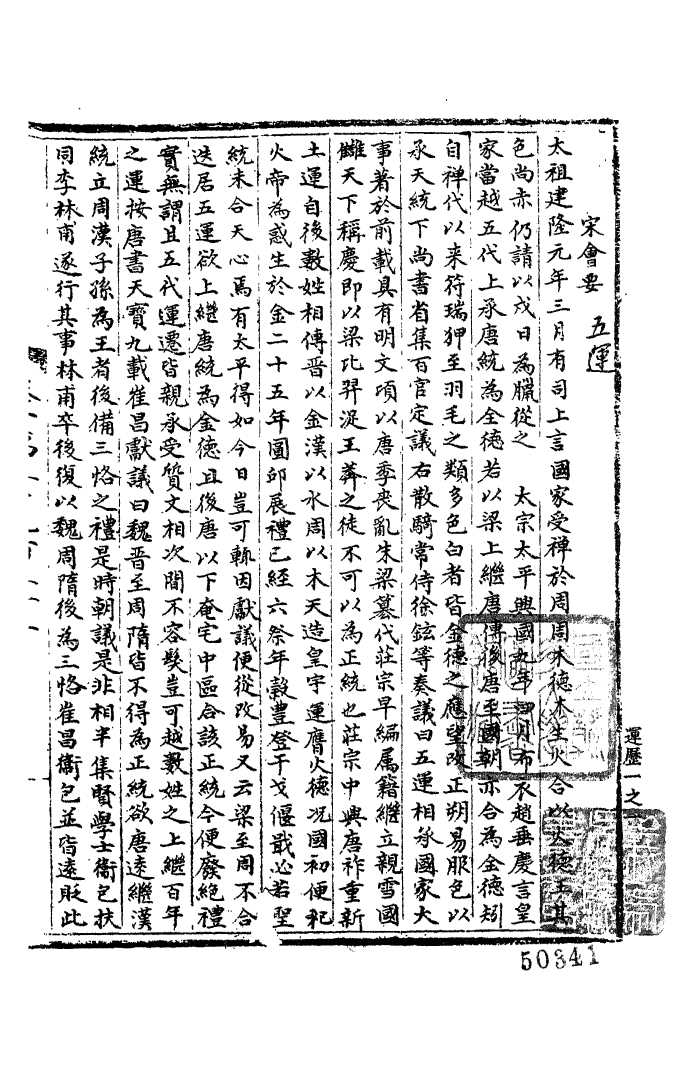 宋會要
五運
太祖建隆元年三月有司上言國家受禪於周周木德木生火合以火德王其
色尚赤仍請以戌日為臘從之　太宗太平興國九年四月布衣趙垂慶言皇
家當越五代上承唐統為金德若以梁上繼唐傳後唐至國朝亦合為金德矧
自禪代以来符瑞狎至羽毛之類多色白者皆金德之應望改正朔易服色以
承天統下尚書省集百官定議右散騎常侍徐鉉等奏議曰五運相承國家大
事著於前載具有明文項以唐季丧亂朱梁簒代莊宗早編属籍繼立親雪國
讎天下稱慶即以梁比羿浞王莽之徒不可以為正統也莊宗中興唐祚重新
土運自後數姓相傳晋以金漢以水周以木天造皇宇運膺火德况國初便祀
火帝為感生於金二十五年圜邱展禮已經六祭年穀豊登干戈偃戢必若聖
統未合天心焉有太平得如今日豈可輙因獻議便從改易又云梁至周不合
迭居五運欲上繼唐統為金德且後唐以下奄宅中區合該正統今便廢絕禮
實無謂且五代運遷皆親承受質文相次間不容髮豈可越數姓之上繼百年
之運按唐書天寳九載崔昌獻議曰魏晋至周隋皆不得為正統欲唐逺繼漢
統立周漢子孫為王者後備三恪之禮是時朝議是非相半集賢學士衛包扶
同李林甫遂行其事林甫卒後復以魏周隋後為三恪崔昌衞包並皆逺貶此
運歷一之
50341